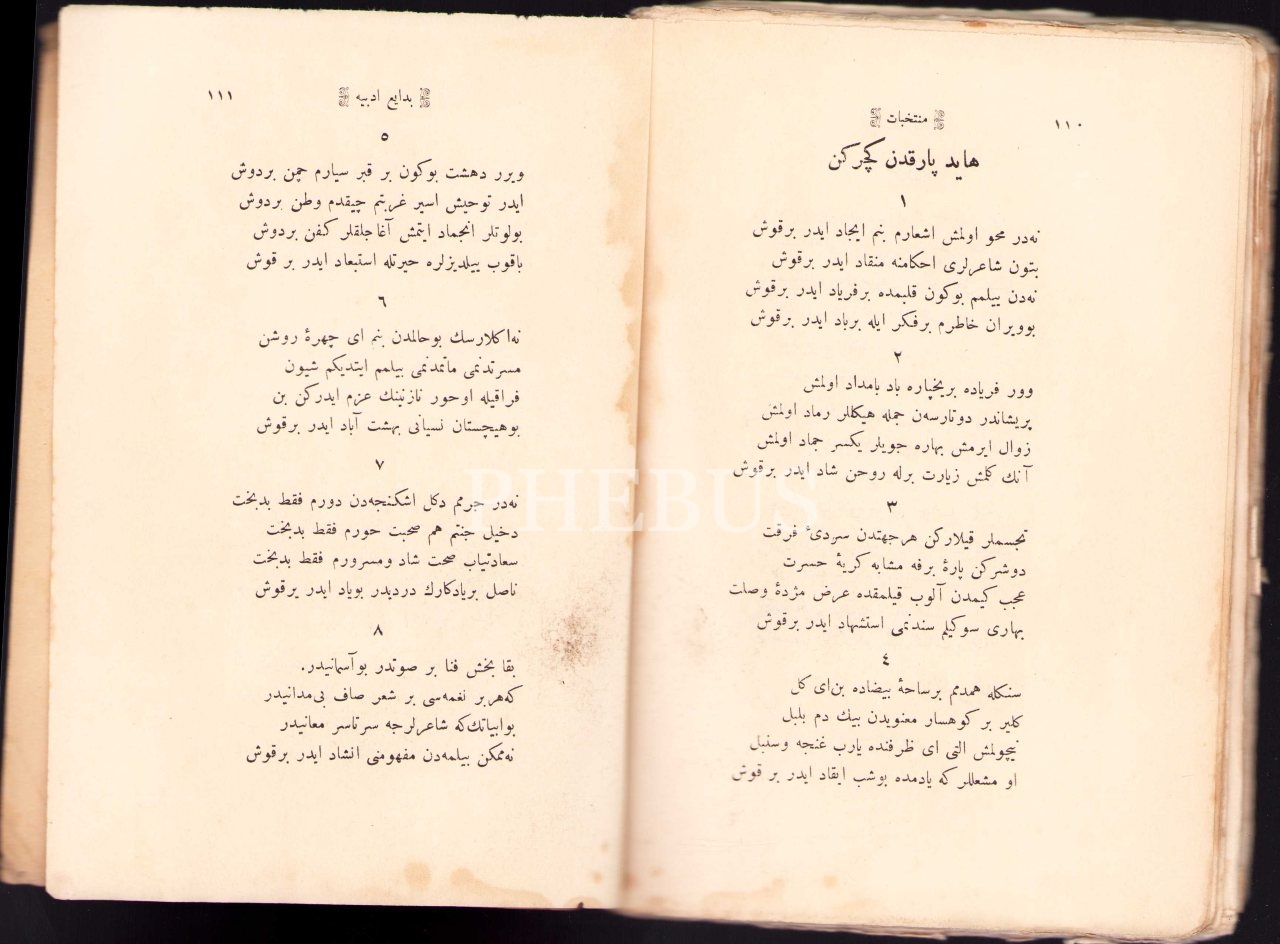 ١١٠
منتخبات
هايد پارقدن كچركن
١
نه‌در محو اولمش اشعارم بنم ايجاد ايدر برقوش
بتون شاعرلرى احكامنه منقاد ايدر برقوش
نه‌دن بيلمم بوكون قلبمده برفرياد ايدر برقوش
بوويران خاطرم برفكر ايله برباد ايدر برقوش
٢
وور فرياده بريخپاره باد بامداد اولمش
پريشاندر دوتارسه‌ن جمله هيكللر رماد اولمش
زوال ايرمش بهاره جويلر يكسر جماد اولمش
آنك كلمش زيارت برله روحن شاد ايدر برقوش
٣
تجسملر قيلاركن هرجهتدن سردىٔ فرقت
دوشركن پارهٔ برفه مشابه كريهٔ حسرت
عجب كيمدن آلوب قيلمقده عرض مژدهٔ وصلت
بهارى سوكيلم سندنمى استشهاد ايدر برقوش
٤
سنكله همدمم برساحهٔ بيضاده بن‌اى كل
كلير بر كوهسار معنويدن بيك دم بلبل
نيچولمش التى اى ظرفنده يارب غنجه وسنبل
او مشعللر كه يادمده بوشب ايقاد ايدر بر قوش
بدايع ادبيه
١١١
٥
ويرر دهشت بوكون بر قبر سيارم چمن بردوش
ايدر توحيش اسير غربتم چيقدم وطن بردوش
بولوتلر انجماد ايتمش آغاجلقلر كفن بردوش
باقوب ييلديزلره حيرتله استبعاد ايدر بر قوش
٦
نه‌اكلارسك بوحالمدن بنم اى چهرهٔ روشن
مسرتدنمى ماتمدنمى بيلمم ايتديكم شيون
فراقيله اوحور نازنينك عزم ايدركن بن
بوهيچستان نسيانى بهشت آباد ايدر برقوش
٧
نه‌در جرمم دكل اشكنجه‌دن دورم فقط بدبخت
دخيل جنتم هم صحبت حورم فقط بدبخت
سعادتياب صحت شاد ومسرورم فقط بدبخت
ناصل بريادكارك درديدر بوياد ايدر برقوش
٨
بقا بخش فنا بر صوتدر بوآسمانيدر.
كه‌هربر نغمه‌سى بر شعر صاف بى‌مدانيدر
بوابياتك‌كه شاعرلرجه سرتاسر معانيدر
نه‌ممكن بيلمه‌دن مفهومنى انشاد ايدر برقوش
PHEBUS